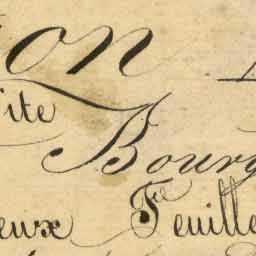 on
ite
Bourg
eux Feuille